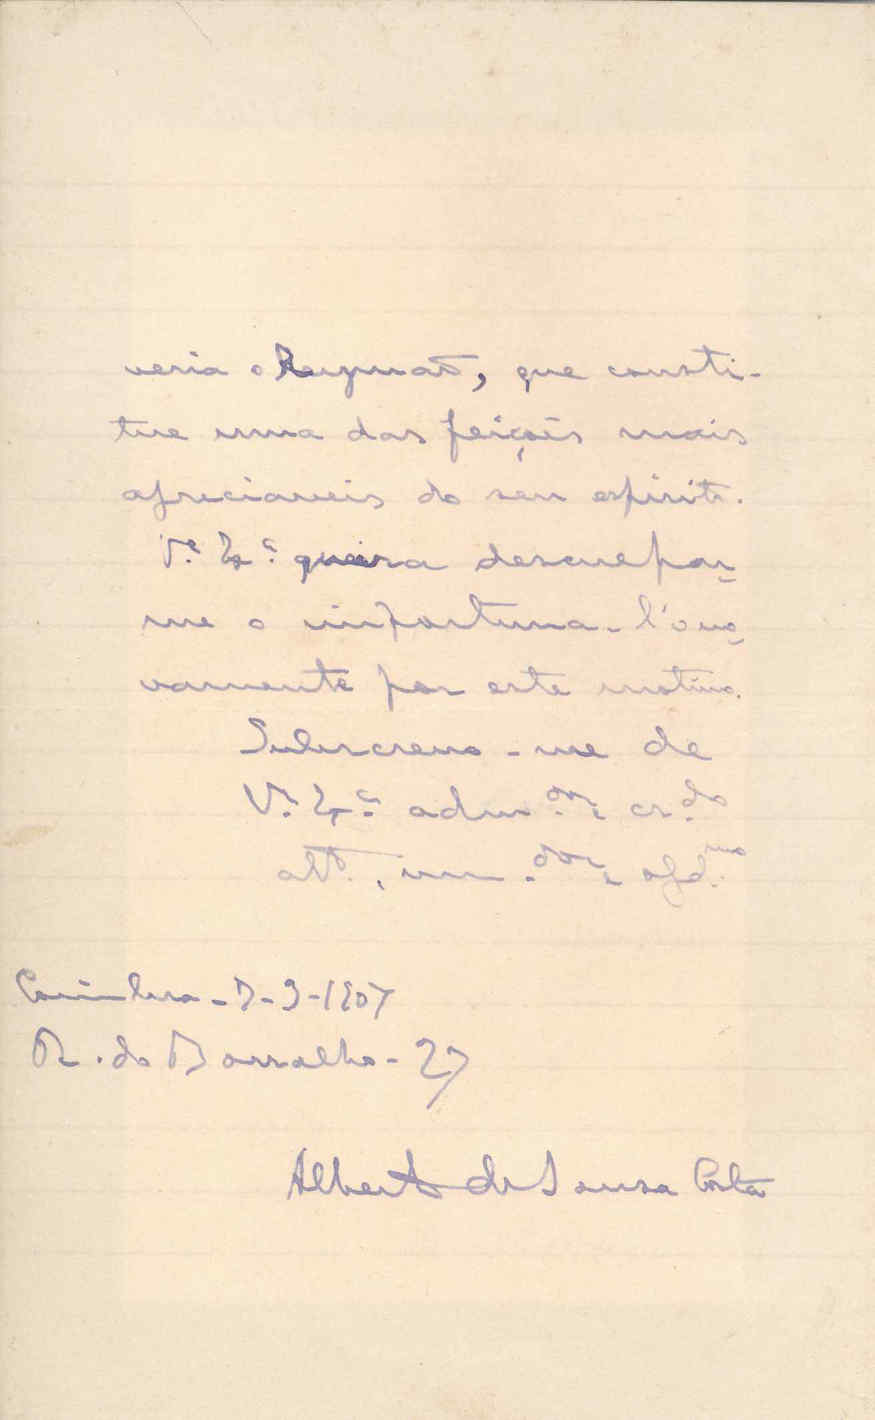 veria o  que consti-
tue uma das feições mais
apreciaveis do seu espirito.
V.ª Ex.ª queira desculpar-
me o importuna-l'o no-
vamente por este motivo.
Subscrevo-me de
V.ª Ex.ª adm.dor e cr.do
att.º, ven.dor e obd.mo
Coimbra-7-3-1907
R. do Borralho-27
Alberto de Sousa Costa